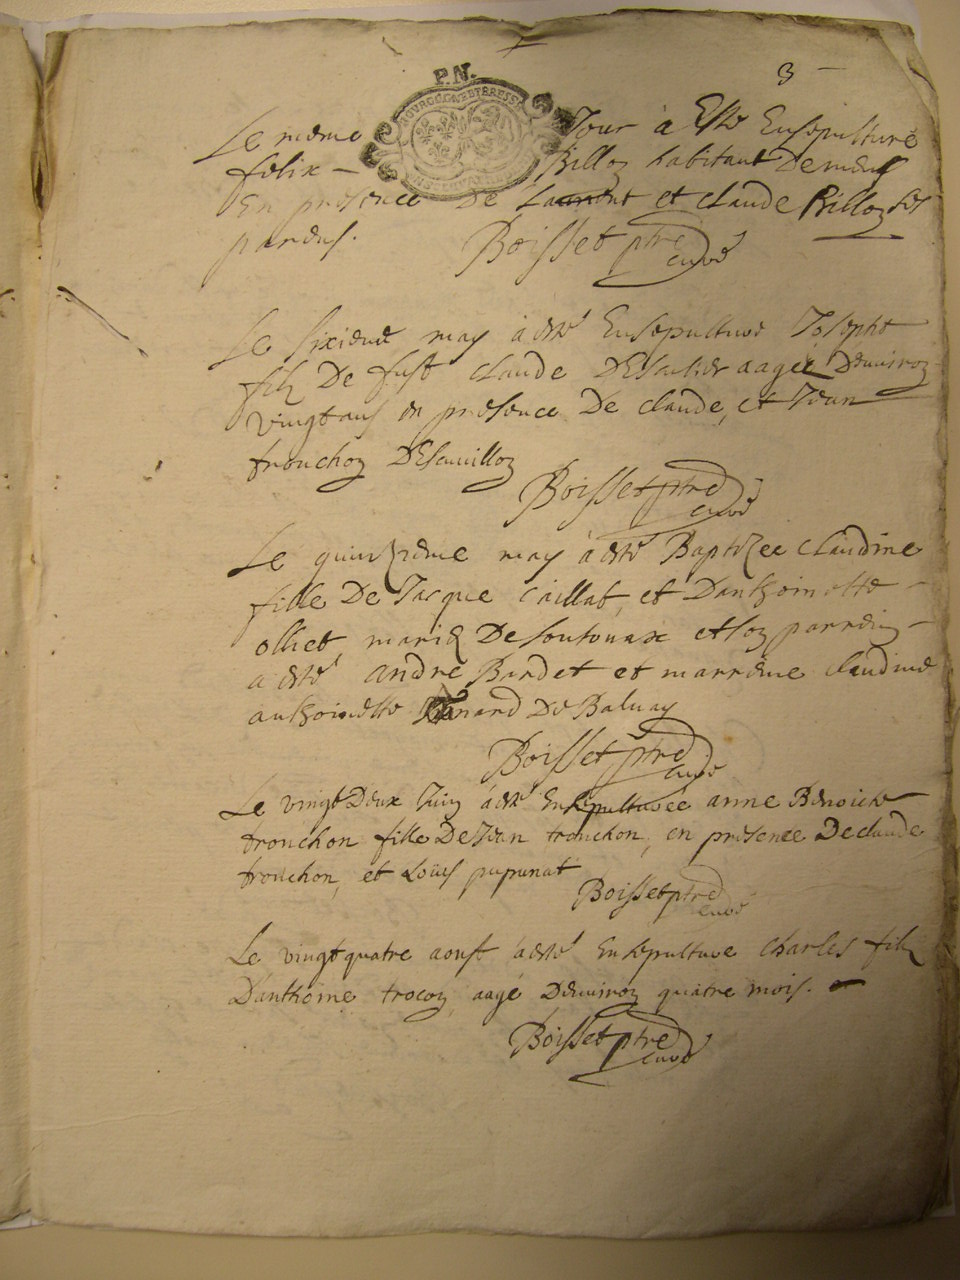 P.N.
3
Le meme Jour à Esté Ensepulturé
felix Billoz habitant
En presence De Laurent et claude Billoz ses
parens.
Boisset ptre
curé
Le sixieme may à esté Ensepulturé Joseph
filz De fust claude aagé Denviroz
vingt ans en presence De claude, et Jean
tronchoz
Boisset ptre
curé
Le quinzieme may à esté Baptizee claudine
fille De Jacque Caillat, et Danthoinette
olliet, mariez De et soz parrein
a esté andré Bardet et marreine claudine
anthoinette De Balvay
Boisset ptre
curé
Le vingt Deux Juin à esté Ensepulturée anne Benoiste
tronchon fille De Jean tronchon, en presence De claude
tronchon, et Loüis
Boisset ptre
curé
Le vingt quatre aoust à esté Ensepulturé Charles filz
D'anthoine trocoz aagé Denviroz quatre mois.
Boisset ptre
curé